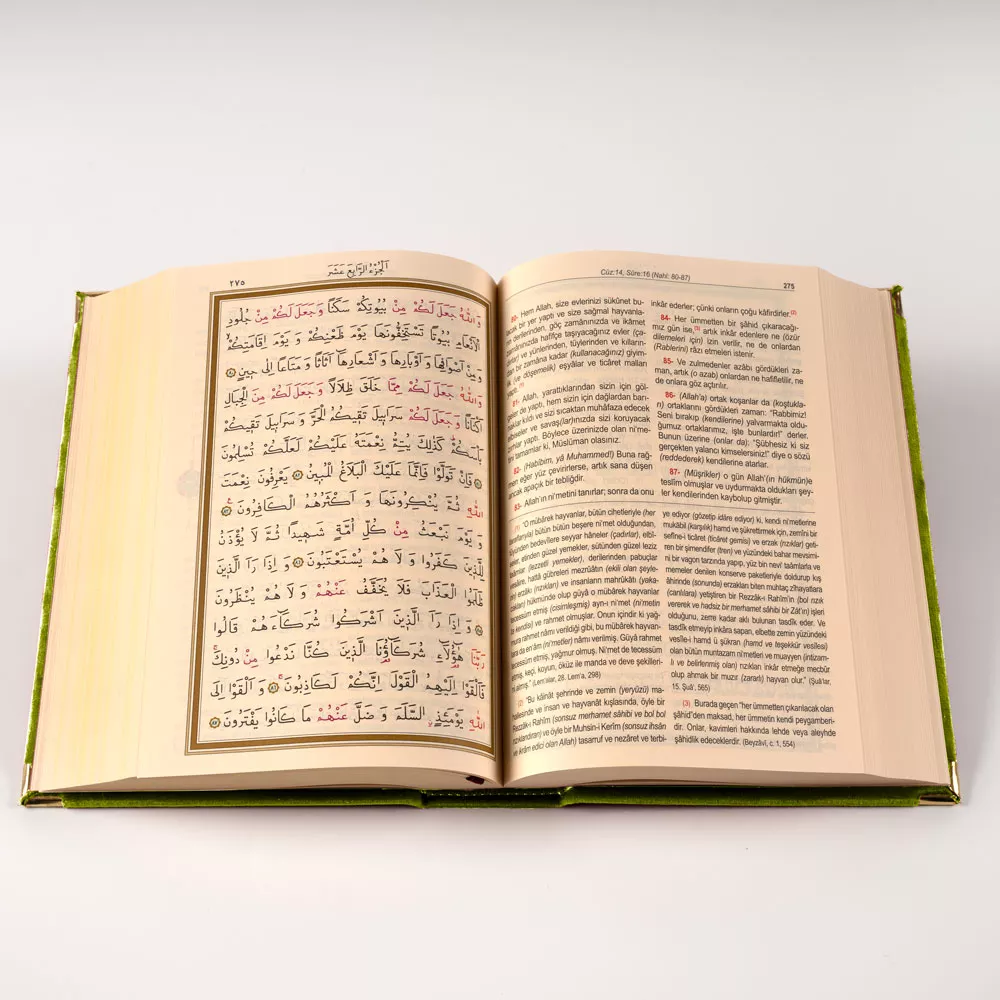 ٢٧٥
اَلْجُزْءُ الرَّابِعَ عَشَرَ
وَاللّٰهُ جَعَلَ لَكُمْ مِنْ بُيُوتِكُمْ سَكَنًا وَجَعَلَ لَكُمْ مِنْ جُلُودِ
الْاَنْعَامِ بُيُوتًا تَسْتَخِفُّونَهَا يَوْمَ ظَعْنِكُمْ وَ يَوْمَ اِقَامَتِكُمْ
وَمِنْ اَصْوَافِهَا وَ اَوْبَارِهَا وَ اَشْعَارِهَا اَثَاثًا وَ مَتَاعًا اِلٰى حِينٍ ﴿٨٠﴾
وَاللّٰهُ جَعَلَ لَكُمْ مِمَّا خَلَقَ ظِلَالًا وَجَعَلَ لَكُمْ مِنَ الْجِبَالِ
اَكْنَانًا وَجَعَلَ لَكُمْ سَرَابِيلَ تَقِيكُمُ الْحَرَّ وَ سَرَابِيلَ تَقِيكُمْ
بَاْسَكُمْ كَذٰلِكَ يُتِمُّ نِعْمَتَهُ عَلَيْكُمْ لَعَلَّكُمْ تُسْلِمُونَ
﴿٨١﴾ فَاِنْ تَوَلَّوْا فَاِنَّمَا عَلَيْكَ الْبَلَاغُ الْمُبِينُ ﴿٨٢﴾ يَعْرِفُونَ نِعْمَتَ
اللّٰهِ ثُمَّ يُنْكِرُونَهَا وَ اَكْثَرُهُمُ الْكَافِرُونَ ﴿٨٣﴾
وَ يَوْمَ نَبْعَثُ مِنْ كُلِّ اُمَّةٍ شَهِيدًا ثُمَّ لَا يُؤْذَنُ
لِلَّذِينَ كَفَرُوا وَ لَا هُمْ يُسْتَعْتَبُونَ ﴿٨٤﴾ وَ اِذَا رَاَ الَّذِينَ
ظَلَمُوا الْعَذَابَ فَلَا يُخَفَّفُ عَنْهُمْ وَ لَا هُمْ يُنْظَرُونَ
﴿٨٥﴾ وَ اِذَا رَاَ الَّذِينَ اَشْرَكُوا شُرَكَٓاءَهُمْ قَالُوا
رَبَّنَا هٰٓؤُلَٓاءِ شُرَكَٓاؤُنَا الَّذِينَ كُنَّا نَدْعُوا مِنْ دُونِكَ
فَاَلْقَوْا اِلَيْهِمُ الْقَوْلَ اِنَّكُمْ لَكَاذِبُونَ ﴿٨٦﴾ وَ اَلْقَوْا اِلَى
اللّٰهِ يَوْمَئِذٍ السَّلَمَ وَ ضَلَّ عَنْهُمْ مَا كَانُوا يَفْتَرُونَ ﴿٨٧﴾
Cüz:14, Sûre:16 (Nahl: 80-87)
275
80- Hem Allah, size evlerinizi sükûnet bu-
acak bir yer yaptı ve size sağmal hayvanla-
derilerinden, göç zamanınızda ve ikâmet
zamanınızda hafifçe taşıyacağınız evler (ça-
ve yünlerinden, tüylerinden ve kılların-
bir zamana kadar (kullanacağınız) giyim-
(ve döşemelik) eşyâlar ve ticâret malları
yaptı. (1)
81- Allah, yarattıklarından sizin için göl-
de yaptı, hem sizin için dağlardan barı-
kıldı ve sizi sıcaktan muhâfaza edecek
elbiseler ve savaş(lar)ınızda sizi koruyacak
yaptı. Böylece üzerinizde olan ni'me-
tamamlar ki, Müslüman olasınız.
82- (Habîbim, yâ Muhammed!) Buna rağ-
men eğer yüz çevirirlerse, artık sana düşen
ancak apaçık bir tebliğdir.
83- Allah'ın ni'metini tanırlar; sonra da onu
inkâr ederler; çünki onların çoğu kâfirdirler. (2)
84- Her ümmetten bir şâhid çıkaracağı-
mız gün ise, (3) artık inkâr edenlere ne (özür
dilemeleri için) izin verilir, ne de onlardan
(Rablerini) râzı etmeleri istenir.
85- Ve zulmedenler azâbı gördükleri za-
man, artık (o azab) onlardan ne hafifletilir, ne
de onlara göz açtırılır.
86- (Allah'a) ortak koşanlar da (koştukla-
rı) ortaklarını gördükleri zaman: "Rabbimiz!
Seni bırakıp (kendilerine) yalvarmakta oldu-
ğumuz ortaklarımız, işte bunlardır!" derler.
Bunun üzerine (onlar da): "Şübhesiz ki siz
gerçekten yalancı kimselersiniz!" diye o sözü
(reddederek) kendilerine atarlar.
87- (Müşrikler) o gün Allah'(ın hükmün)e
teslîm olmuşlar ve uydurmakta oldukları şey-
ler kendilerinden kaybolup gitmiştir.
(1) "O mübârek hayvanlar, bütün cihetleriyle (her
taraflarıyla) bütün bütün beşere ni'met olduğundan,
tüyünden bedevîlere seyyar hâneler (çadırlar), elbî-
seler, etinden güzel yemekler, sütünden güzel leziz
taamlar (lezzetli yemekler), derilerinden pabuçlar
vesâire, hattâ gübreleri mezrûâtın (ekili olan şeyle-
rin) erzakı (rızıkları) ve insanların mahrûkātı (yaka-
cakları) hükmünde olup gûyâ o mübârek hayvanlar
tecessüm etmiş (cisimleşmiş) ayn-ı ni'met (ni'metin
kendisi) ve rahmet olmuşlar. Onun içindir ki yağ-
mura rahmet nâmı verildiği gibi, bu mübârek hayvan-
lara da en'âm (ni'metler) nâmı verilmiş. Gûyâ rahmet
tecessüm etmiş, yağmur olmuş. Ni'met de tecessüm
etmiş, keçi, koyun, öküz ile manda ve deve şekilleri-
ni almış." (Lem'alar, 28. Lem'a, 298)
(2) "Bu kâinât şehrinde ve zemin (yeryüzü) ma-
hallesinde ve insan ve hayvanât kışlasında, öyle bir
Rezzâk-ı Rahîm (sonsuz merhamet sâhibi ve bol bol
rızıklandıran) ve öyle bir Muhsin-i Kerîm (sonsuz ihsân
ve ikrâm edici olan Allah) tasarruf ve nezâret ve terbi-
ye ediyor (gözetip idâre ediyor) ki, kendi ni'metlerine
mukābil (karşılık) hamd ve şükrettirmek için, zemîni bir
sefîne-i ticâret (ticâret gemisi) ve erzak (rızıklar) geti-
ren bir şimendifer (tren) ve yüzündeki bahar mevsimi-
ni bir vagon tarzında yapıp, yüz bin nevi taâmlarla ve
memeler denilen konserve paketleriyle doldurup kış
âhirinde (sonunda) erzakları biten muhtaç zîhayatlara
(canlılara) yetiştiren bir Rezzâk-ı Rahîm'in (bol rızık
vererek ve hadsiz bir merhamet sâhibi bir Zât'ın) işleri
olduğunu, zerre kadar aklı bulunan tasdîk eder. Ve
tasdîk etmeyip inkâra sapan, elbette zemin yüzündeki
vesîle-i hamd ü şükran (hamd ve teşekkür vesîlesi)
olan bütün muntazam ni'metleri ve muayyen (intizam-
lı ve belirlenmiş olan) rızıkları inkâr etmeğe mecbûr
olup ahmak bir muzır (zararlı) hayvan olur." (Şuâ'lar,
15. Şuâ', 565)
(3) Burada geçen "her ümmetten çıkarılacak olan
şâhid"den maksad, her ümmetin kendi peygamberi-
dir. Onlar, kavimleri hakkında lehde veya aleyhde
şâhidlik edeceklerdir. (Beyzâvî, c. 1, 554)